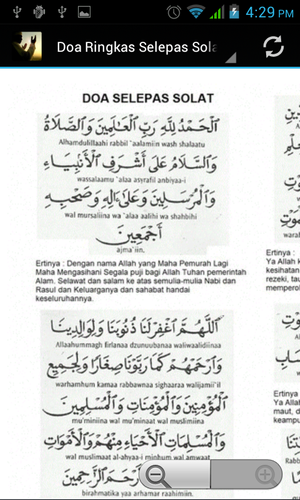 4:29 PM
Doa Ringkas Selepas Sola
DOA SELEPAS SOLAT
الْحَمْدُ لِلَّهِ رَبِّ الْعَالَمِينَ وَالصَّلَاةُ
Alhamdulillaahi rabbil `aalamiin wash shalaatu
وَالسَّلَامُ عَلَى أَشْرَفِ الْأَنْبِيَاءِ
wassalaamu `alaa asyrafil anbiyaa-i
وَالْمُرْسَلِينَ وَعَلَى آلِهِ وَصَحْبِهِ
wal mursaliina wa `alaa aalihi wa shahbihi
أَجْمَعِينَ
ajma`iin.
Ertinya : Dengan nama Allah yang Maha Pemurah Lagi
Maha Mengasihani Segala puji bagi Allah Tuhan pemerintah
Alam. Selawat dan salam ke atas semulia-mulia Nabi dan
Rasul dan Keluarganya dan sahabat handai
keseluruhannya.
اللَّهُمَّ اغْفِرْ لَنَا ذُنُوبَنَا وَلِوَالِدِينَا
Allaahummagh firlanaa dzunuubanaa waliwaalidiinaa
وَارْحَمْهُمْ كَمَا رَبَّوْنَا صِغَارًا وَلِجَمِيعِ
warhamhum kamaa rabbawnaa sighaaraa walijamii`il
الْمُؤْمِنِينَ وَالْمُؤْمِنَاتِ وَالْمُسْلِمِينَ
mu'miniina wal mu'minaat wal muslimiina
وَالْمُسْلِمَاتِ الْأَحْيَاءِ مِنْهُمْ وَالْأَمْوَاتِ
wal muslimaat al-ahyaa-i minhum wal amwaat
أَرْحَمَ الرَّاحِمِينَ
birahmatika yaa arhamar raahimiin.
Ertinya :
Ya Allah
kesihatan
rezeki, ta
memperol
Ertinya
Ya Allah
maut, d
keampu